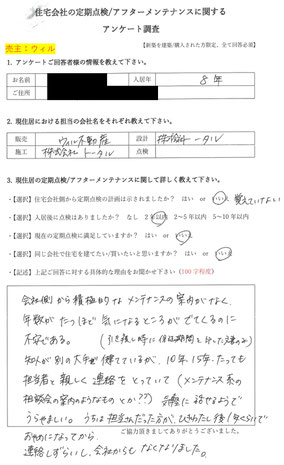 住宅会社の定期点検/アフターメンテナンスに関する
アンケート調査
売主：ウィル
【新築を建築/購入された方限定、全て回答必須】
1. アンケートご回答者様の情報を教えて下さい。
お名前 入居年 8年
ご住所
2. 現住居における担当の会社名をそれぞれ教えて下さい。
販売 ウィル不動産 設計 株式会社トータル
施工 株式会社トータル 点検
3. 現住居の定期点検/アフターメンテナンスに関して詳しく教えて下さい。
・【選択】住宅会社側から定期点検の計画は示されましたか？ はい or いいえ 覚えていない
・【選択】入居後に点検はありましたか？ なし 2年以内 2～5年以内 5～10年以内
・【選択】現在の定期点検に満足していますか？ はい or いいえ
・【選択】同じ会社で住宅を建てたい/買いたいと思いますか？ はい or いいえ
・【記述】上記ご回答に対する具体的な理由をお聞かせ下さい（100字程度）
会社側から積極的なメンテナンスの案内がなく、
年数がたつほど気になるところがでてくるのに
不安である。（引き渡し時に保証期間を示した
知人が別の大手で建てているが、10年、15年たっても
担当者と親しく連絡をとっていて（メンテナンス系の
相談会の案内のようなものとか??）
うらやましい。うちは担当さんだった方が、ひきわたし後1年くらいで
おやめになってから
連絡しずらいし、会社からもなくなりました。
ご協力頂きましてありがとうございました。